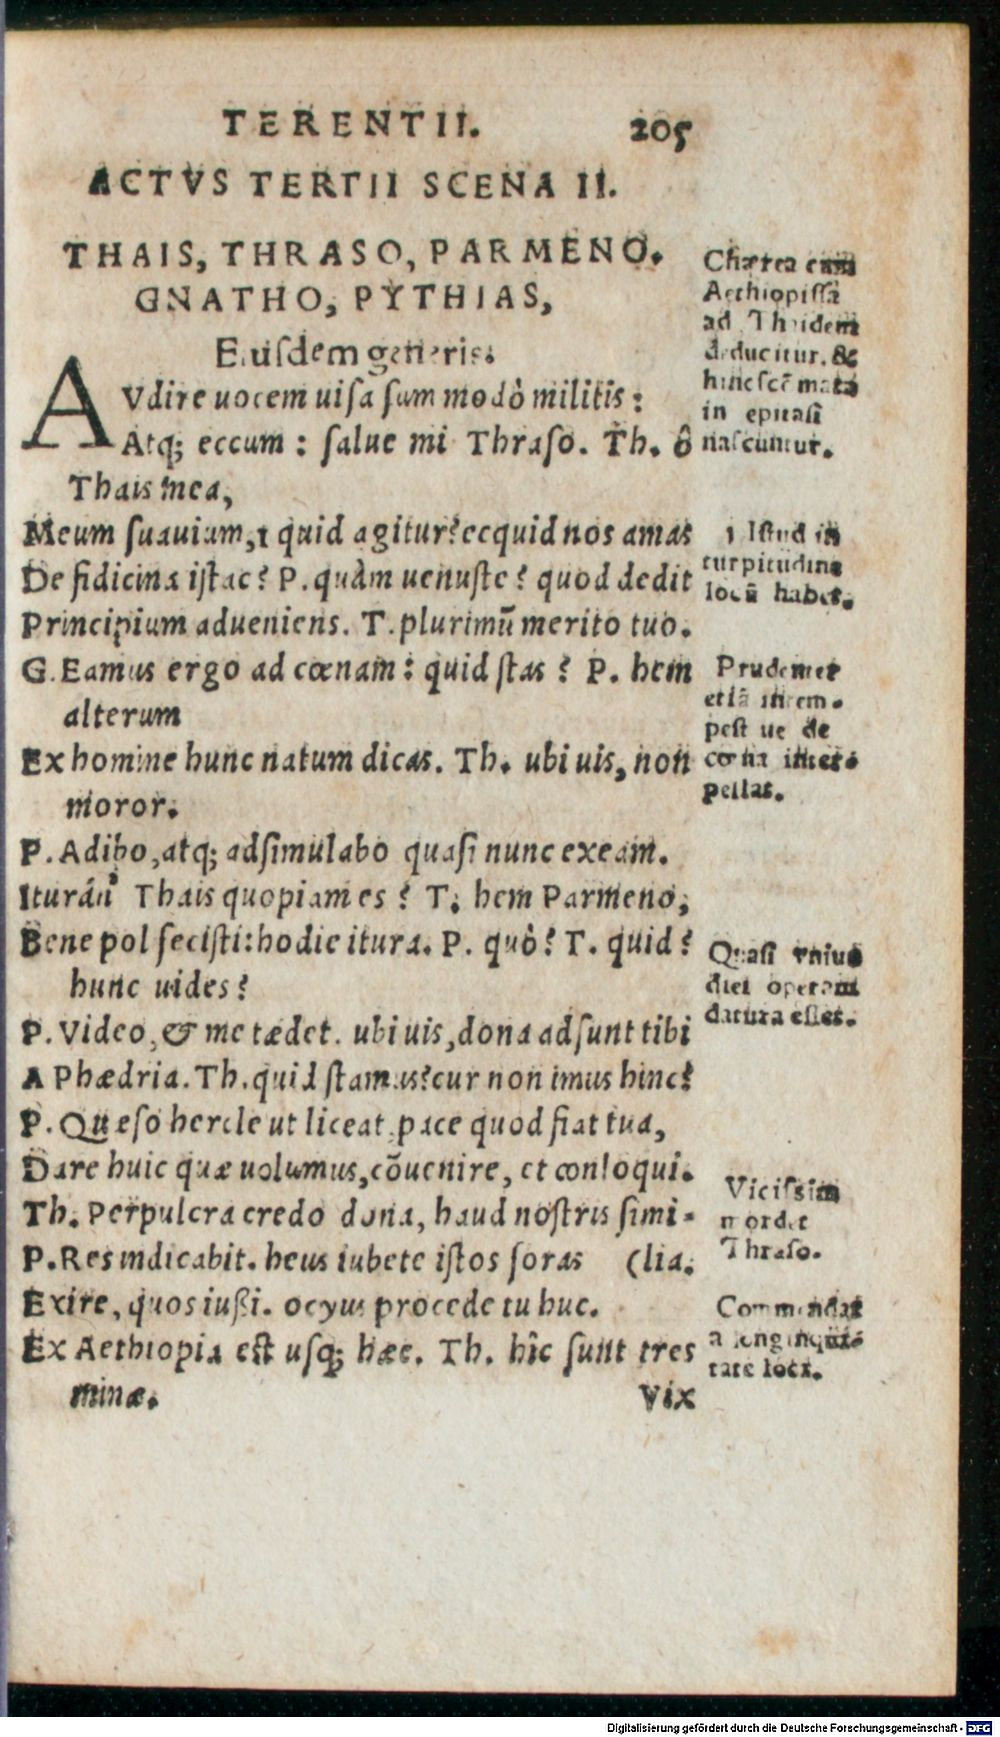 TERENTII. 205
ACTVS TERTII SCENA II.
THAIS, THRASO, PARMENO.
GNATHO, PYTHIAS,
Eiusdem generis.
AVdire uocem uisa sum modò militis:
Atq; eccum: salue mi Thraso. Th. ô
Thais mea,
Meum suauium, 1 quid agitur? ecquid nos amas
De fidicina istac? P. quàm uenuste? quod dedit
Principium adueniens. T. plurimū merito tuo.
G. Eamus ergo ad cœnam: quid stas? P. hem
alterum
Ex homine hunc natum dicas. Th. ubi uis, non
moror.
P. Adibo, atq; adsimulabo quasi nunc exeam.
Iturán' Thais quopiam es? T. hem Parmeno,
Bene pol fecisti: hodie itura. P. quò? T. quid?
hunc uides?
P. Video, & me tædet. ubi uis, dona adsunt tibi
A Phædria. Th. quid stamus? cur non imus hinc?
P. Quæso hercle ut liceat, pace quod fiat tua,
Dare huic quæ uolumus, cōuenire, et conloqui.
Th. Perpulcra credo dona, haud nostris simi-
P. Res indicabit. heus iubete istos foras (lia.
Exire, quos iußi. ocyus procede tu huc.
Ex Aethiopia est usq; hæc. Th. hîc sunt tres
minæ. Vix
Chærea cum
Aethiopissa
ad Thaidem
deducitur. &
hinc scē mata
in epitasi
nascuntur.
1 Istud in
turpitudine
locū habet.
Prudenter
etiā intem-
pestiue de
cœna inter-
pellat.
Quasi vnius
diei operam
datura esset.
Vicissim
mordet
Thraso.
Commendat
a longinqui-
tate loci.
Digitalisierung gefördert durch die Deutsche Forschungsgemeinschaft - DFG